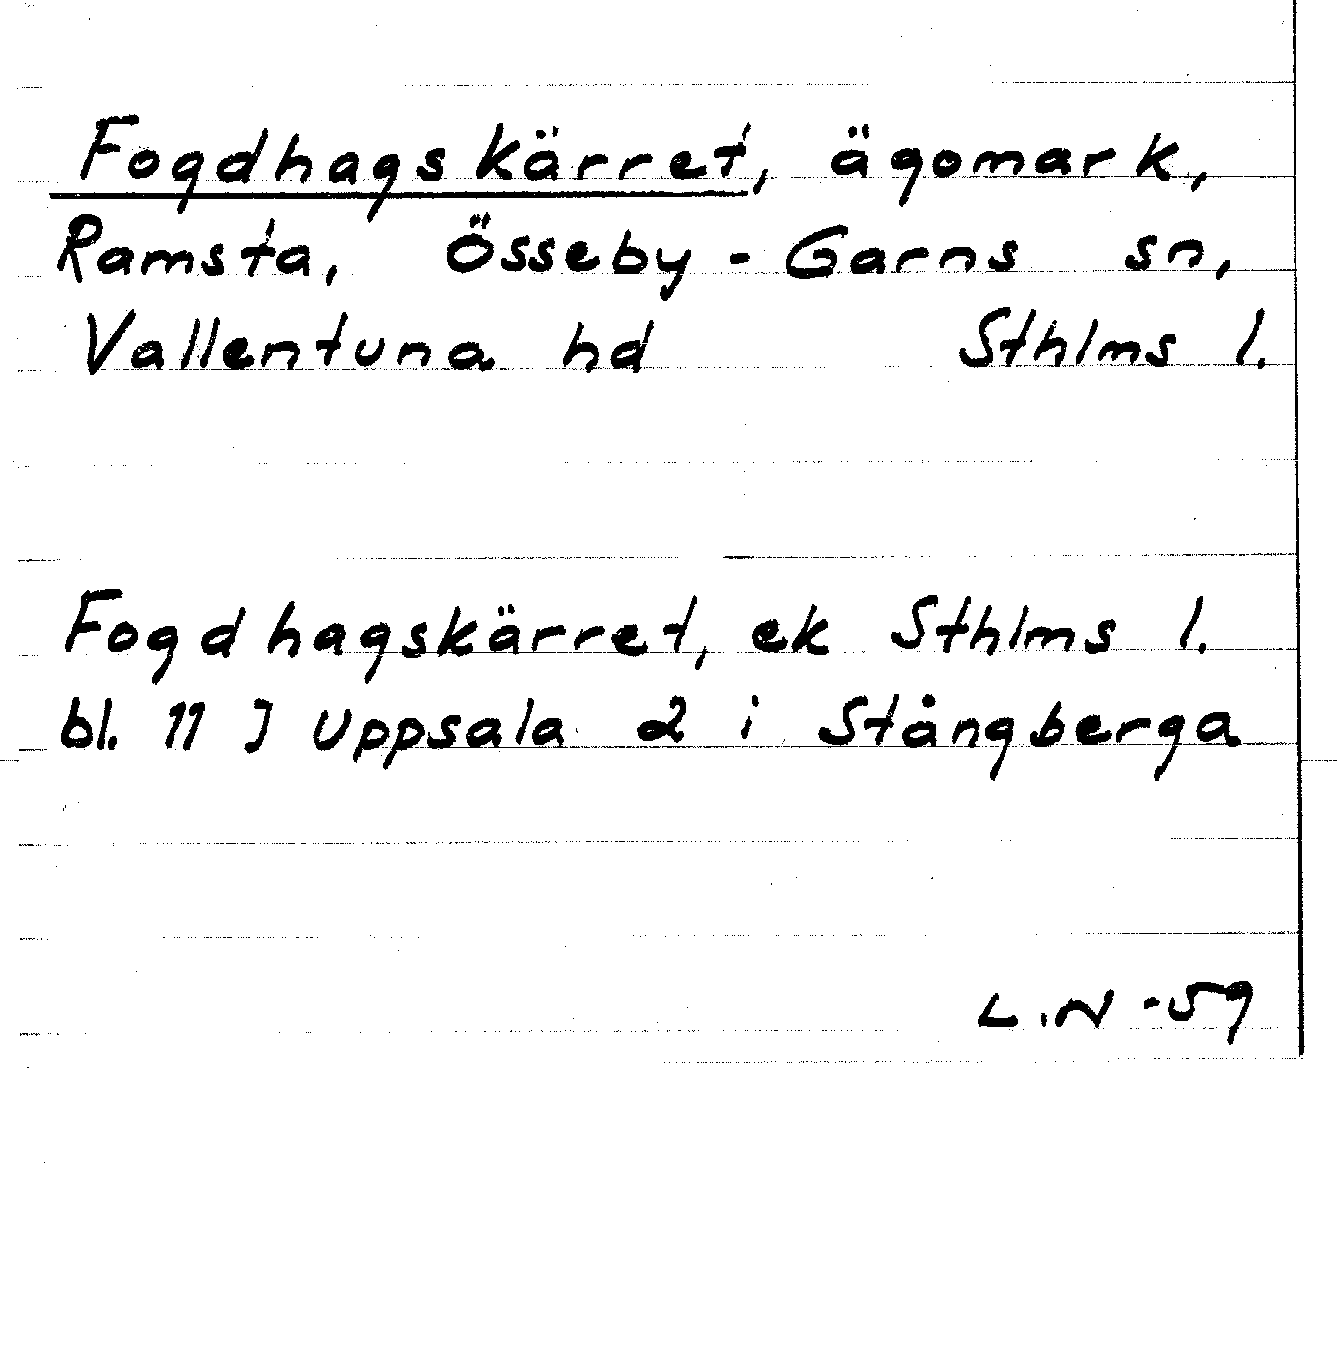 Fogdhagskärret, ägomark,
Ramsta, Össeby-Garns sn,
Vallentuna hd Sthlms l.
Fogdhagskärret, ek Sthlms l.
bl. 11 J Uppsala 2 i Stångberga
L.N -59